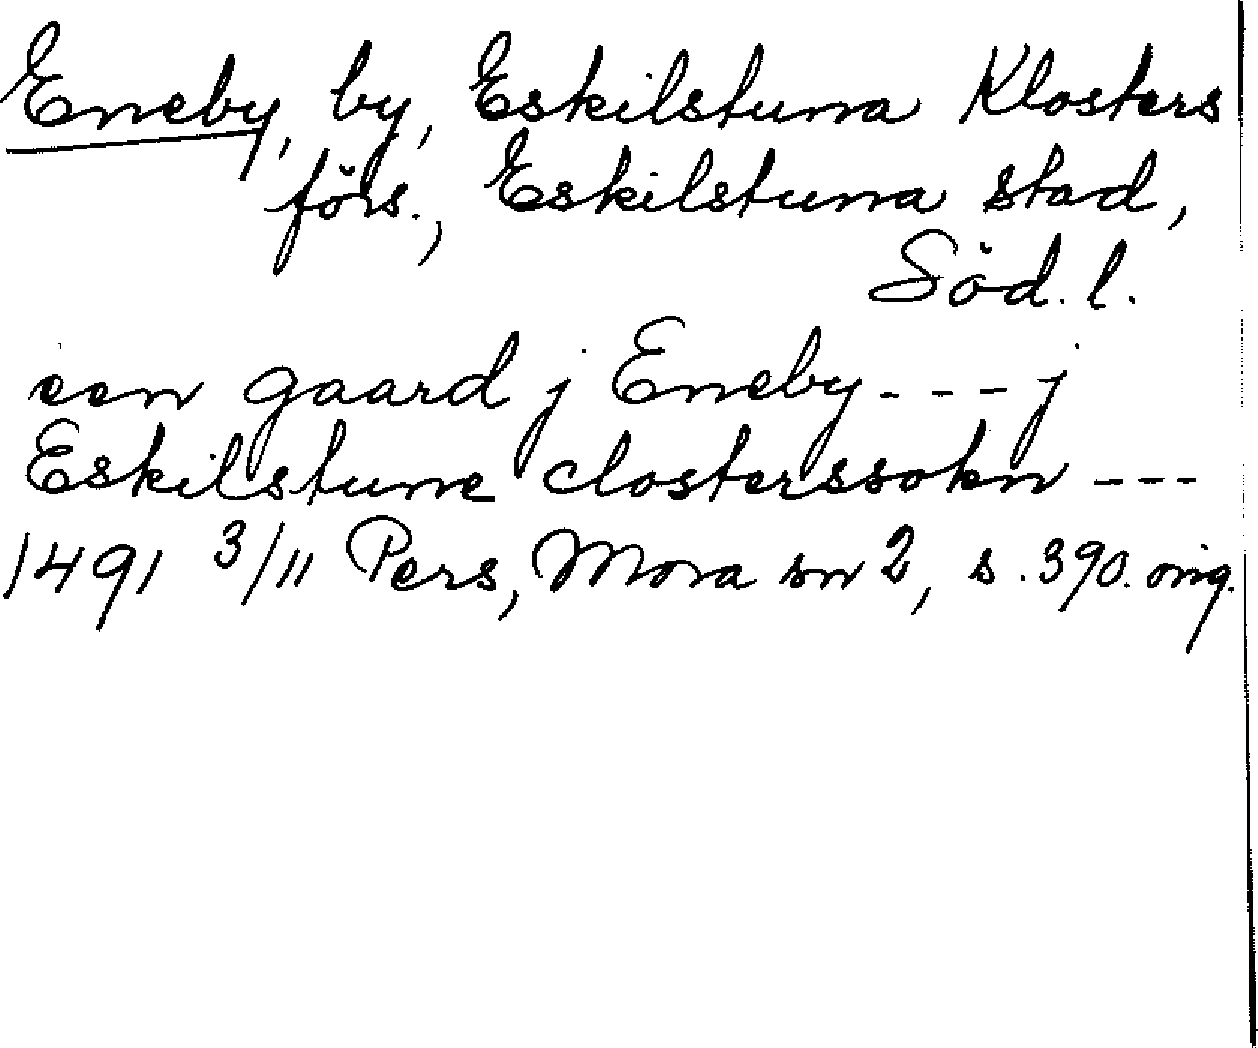 Eneby, by, Eskilstuna Klosters
förs., Eskilstuna stad,
Söd. l.
een gaard j Eneby - - - j
Eskilstune closterssokn - - -
1491 3/11 Pers, Mora sn 2, s. 390. orig.